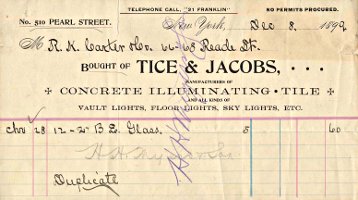 TELEPHONE CALL, "21 FRANKLIN" NO PERMITS PROCURED.
No. 510 PEARL STREET. New York, Dec 8, 1892
M R. K. Carter & Co. 66-68 Reade St.
BOUGHT OF TICE & JACOBS, . . .
MANUFACTURERS OF
CONCRETE ILLUMINATING · TILE
AND ALL KINDS OF
VAULT LIGHTS, FLOOR LIGHTS, SKY LIGHTS, ETC.
28 12 - 2" B L Glass. 5 60
Duplicate